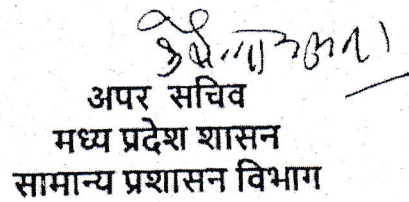 अपर सचिव
मध्य प्रदेश शासन
सामान्य प्रशासन विभाग